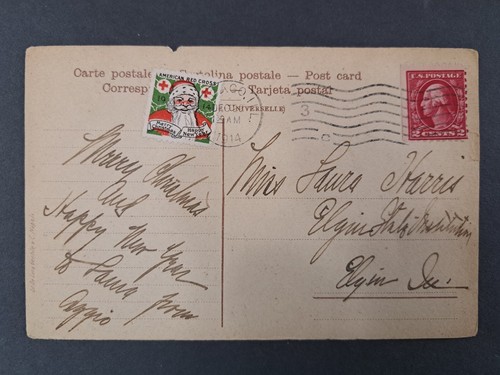 Carte postale — Cartolina postale — Post card
Tarjeta postal
AMERICAN RED CROSS
19 14
MERRY CHRISTMAS
HAPPY NEW YEAR
1914
3
U.S. POSTAGE
2 CENTS 2
Merry Christmas
And
Happy New Year
to Laura from
Aggie
Miss Laura Harris
Elgin State Institution
Elgin Ill.